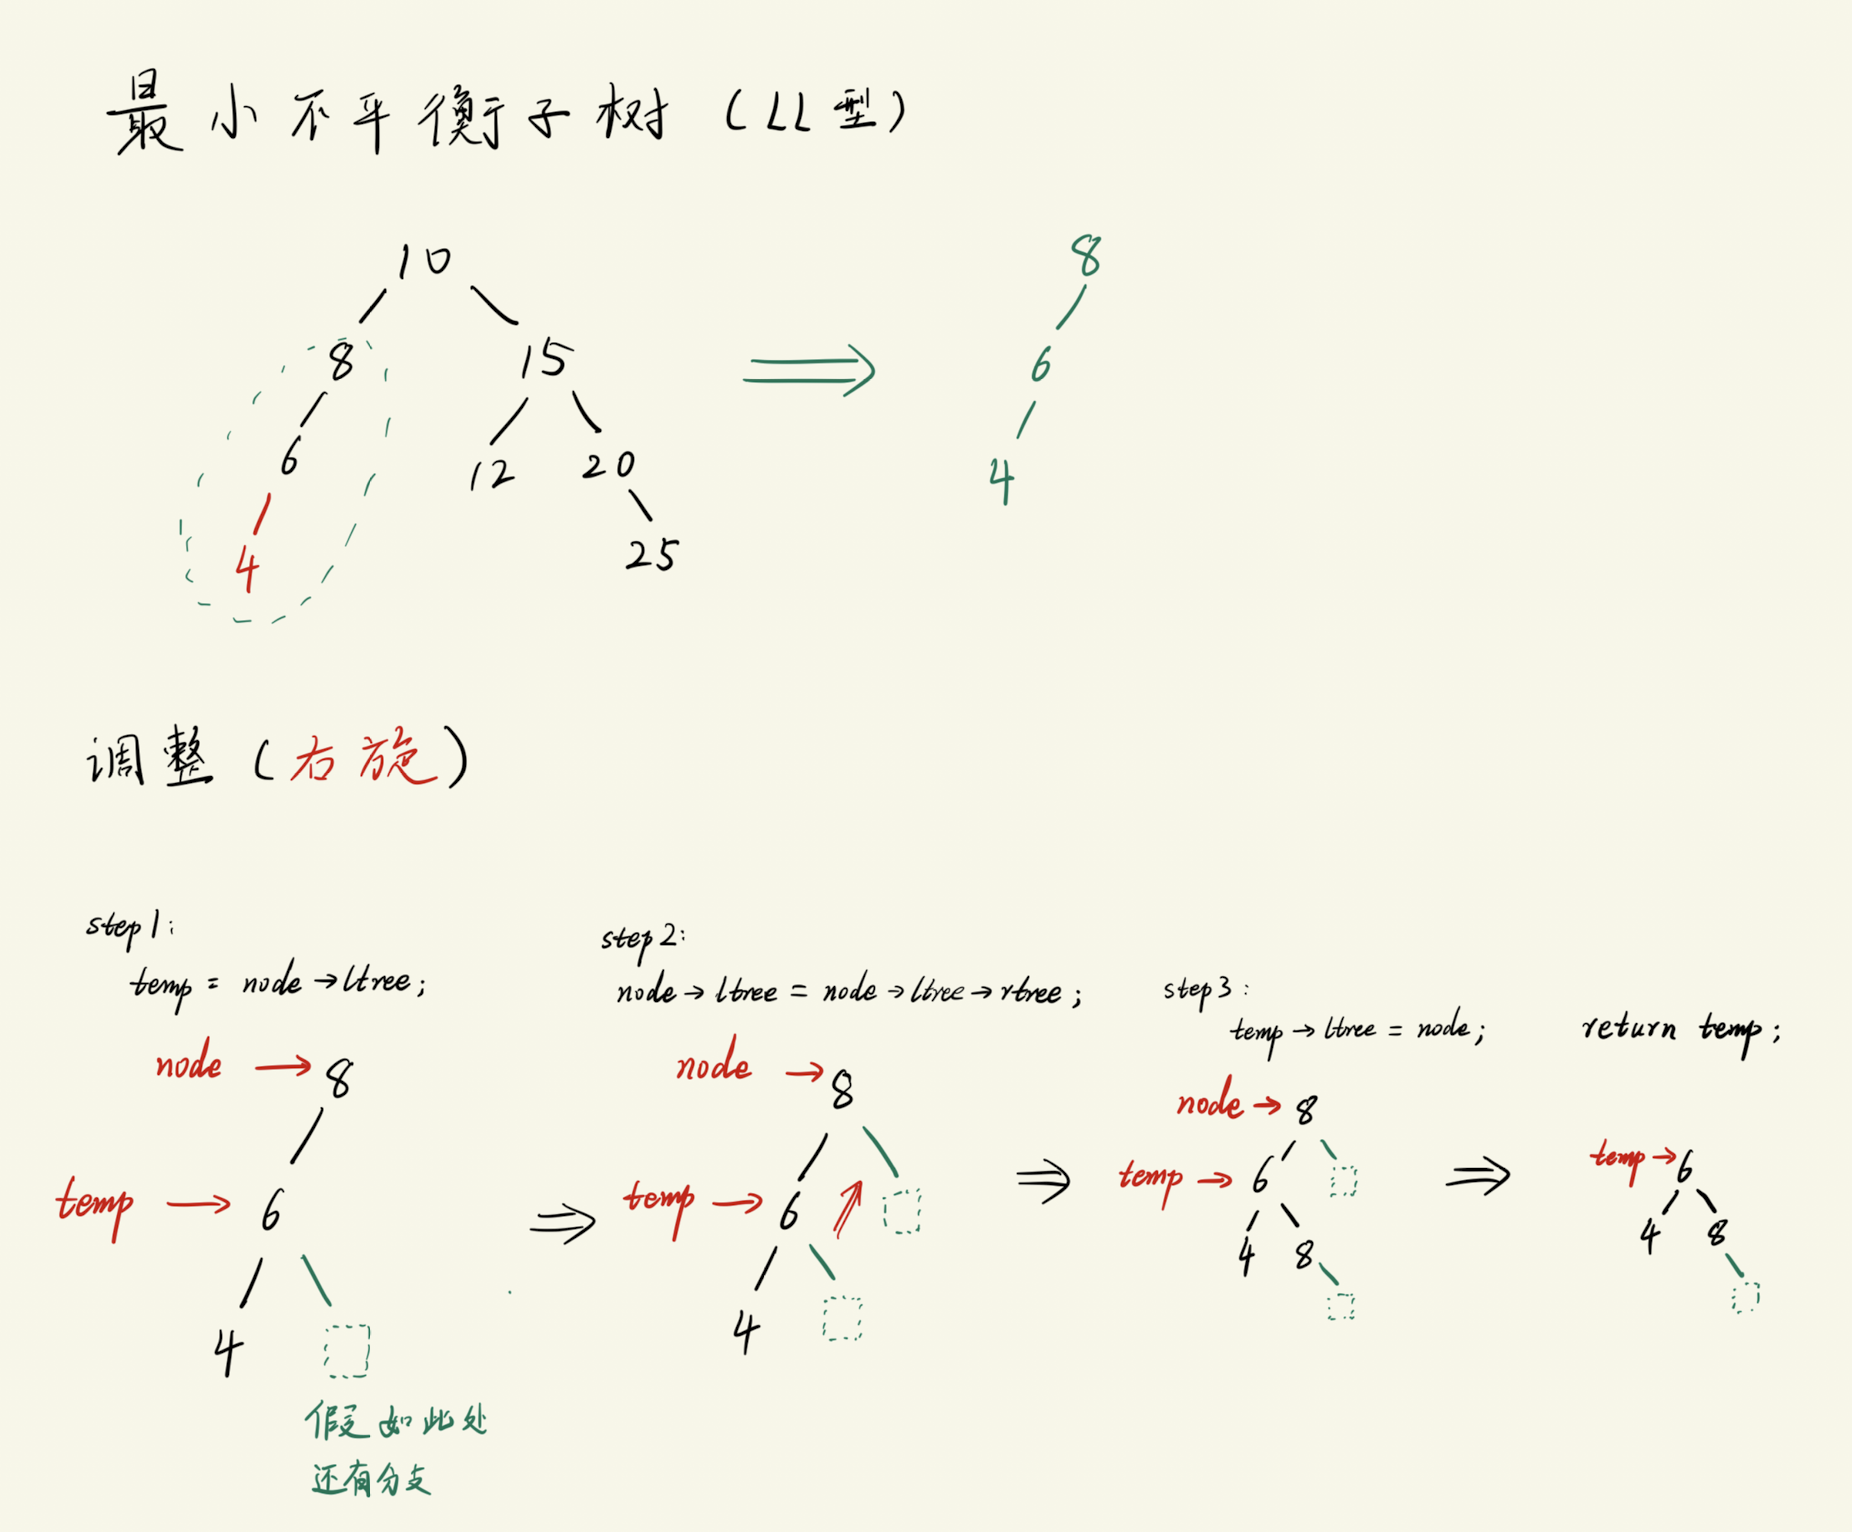 最小不平衡子树（LL型）
10
8
15
6
12
20
4
25
8
6
4
调整（右旋）
step1:
temp = node→ltree;
node → 8
temp → 6
4
假如此处
还有分支
step2:
node→ltree = node→ltree→rtree;
node → 8
temp → 6
4
step3:
temp→ltree = node;
node → 8
temp → 6
4 8
return temp;
temp → 6
4 8